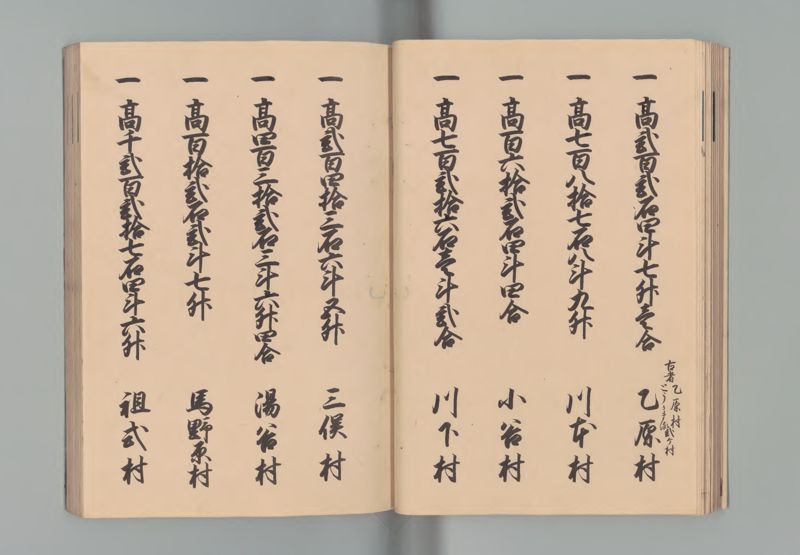 一 高弐百弐石四斗七升壱合 乙原村
古者乙原村
弐ケ村
一 高七百八拾七石八斗九升 川本村
一 高百六拾弐石四斗四合 小谷村
一 高七百弐拾六石壱斗弐合 川下村
一 高弐百四拾三石六斗五升 三俣村
一 高四百三拾弐石三斗六升四合 湯谷村
一 高百拾弐石弐斗七升 馬野原村
一 高千弐百弐拾七石四斗六升 祖式村